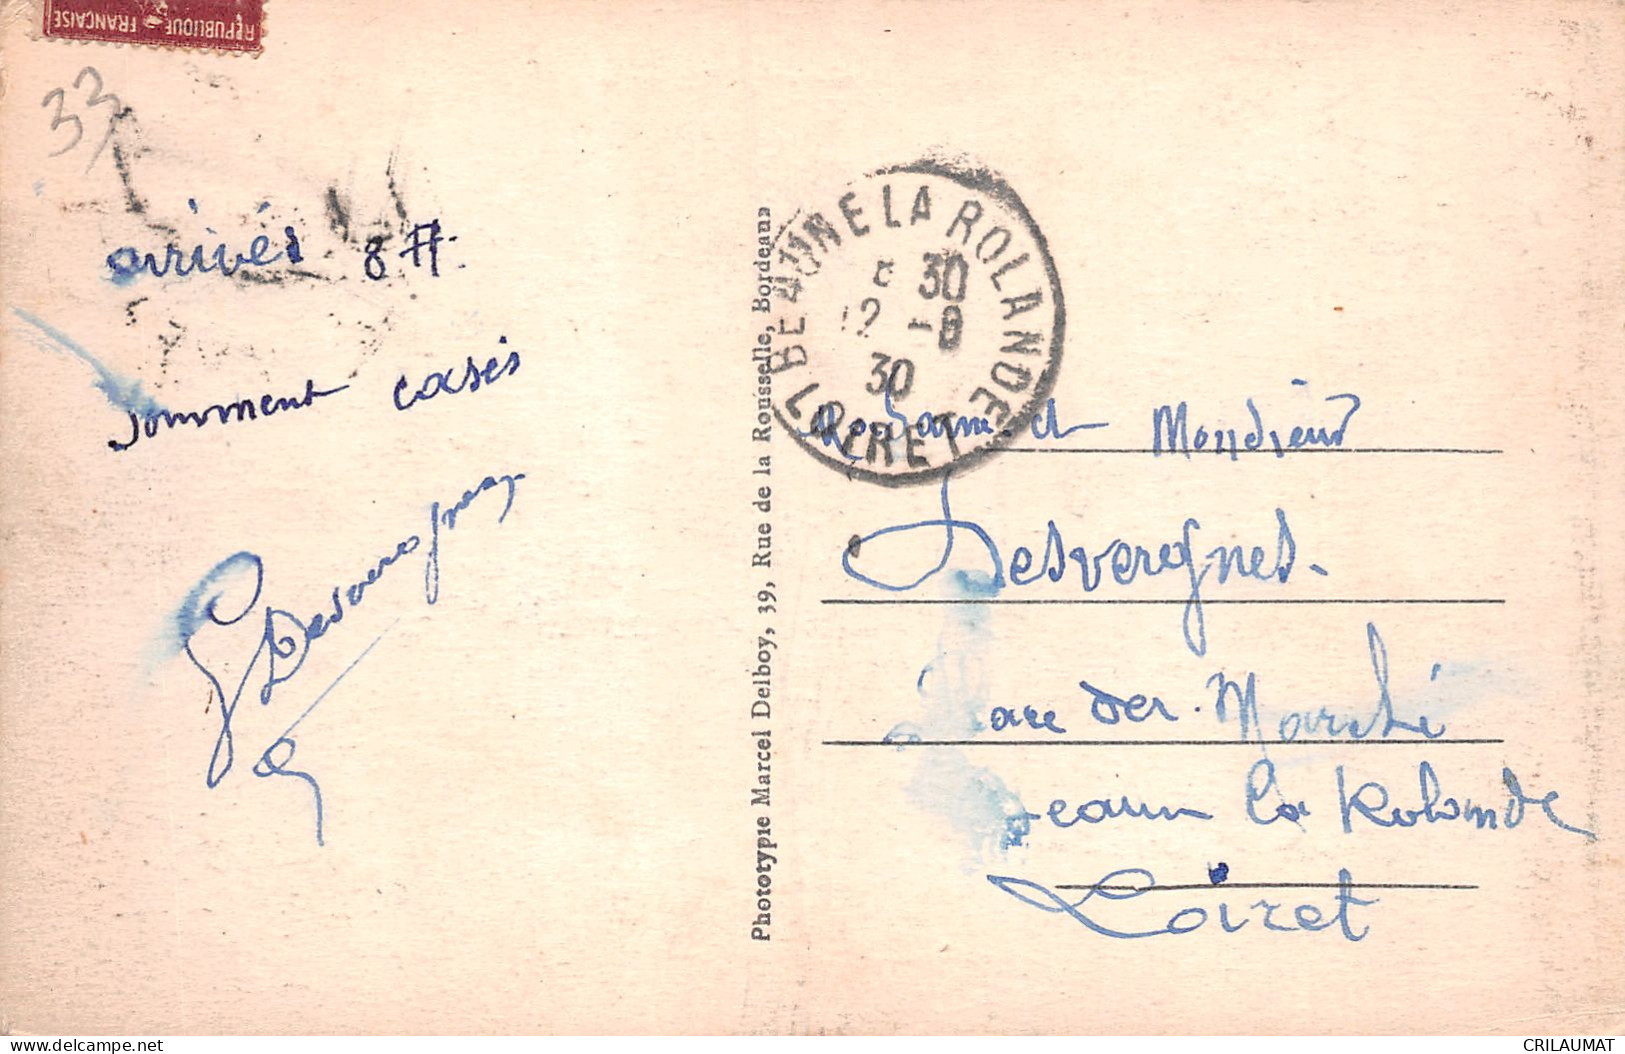 RÉPUBLIQUE FRANÇAISE
33
arrivés 8 H.
sommes casés
Desvergnes
Phototypie Marcel Delboy, 39, Rue de la Rousselle, Bordeaux
BEAUNE LA ROLANDE
30
12 -8
30
LOIRET
Madame et Monsieur
Desvergnes.
Place der. Marché
Beaune la Rolande
Loiret
CRILAUMAT